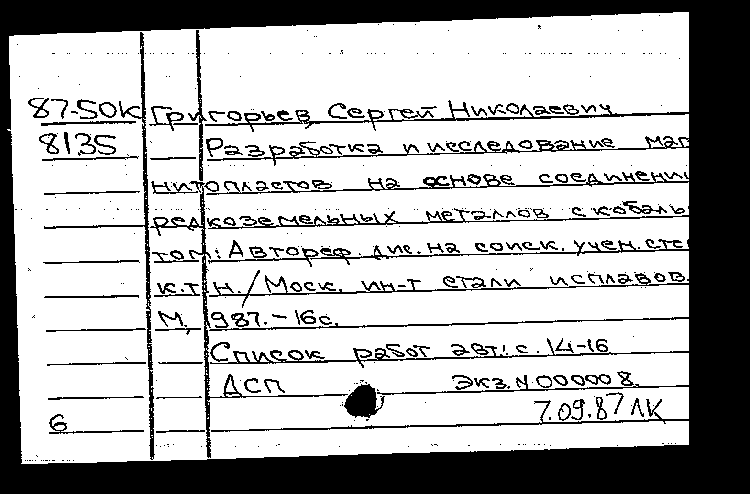 87-50К Григорьев, Сергей Николаевич
8135 Разработка и исследование маг
нитопластов на основе соединений
редкоземельных металлов с кобаль
том: Автореф. дис. на соиск. учен. сте
к.т.н. / Моск. ин-т стали и сплавов.
М, 1987. - 16 с.
Список работ авт.: с. 14-16
ДСП экз. N 000008.
7.09.87 ЛК
6